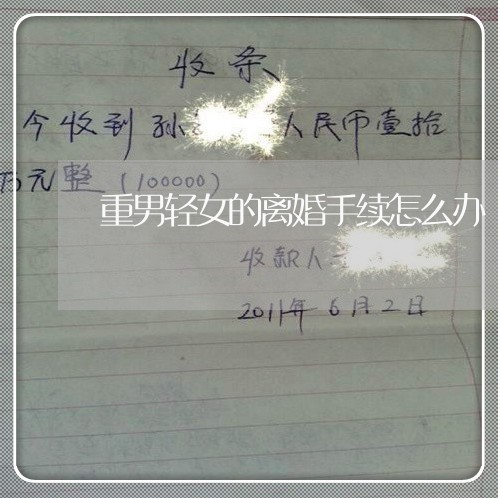 收条
今收到孙 人民币壹拾
万元整（100000）
重男轻女的离婚手续怎么办
收款人
2011年6月2日